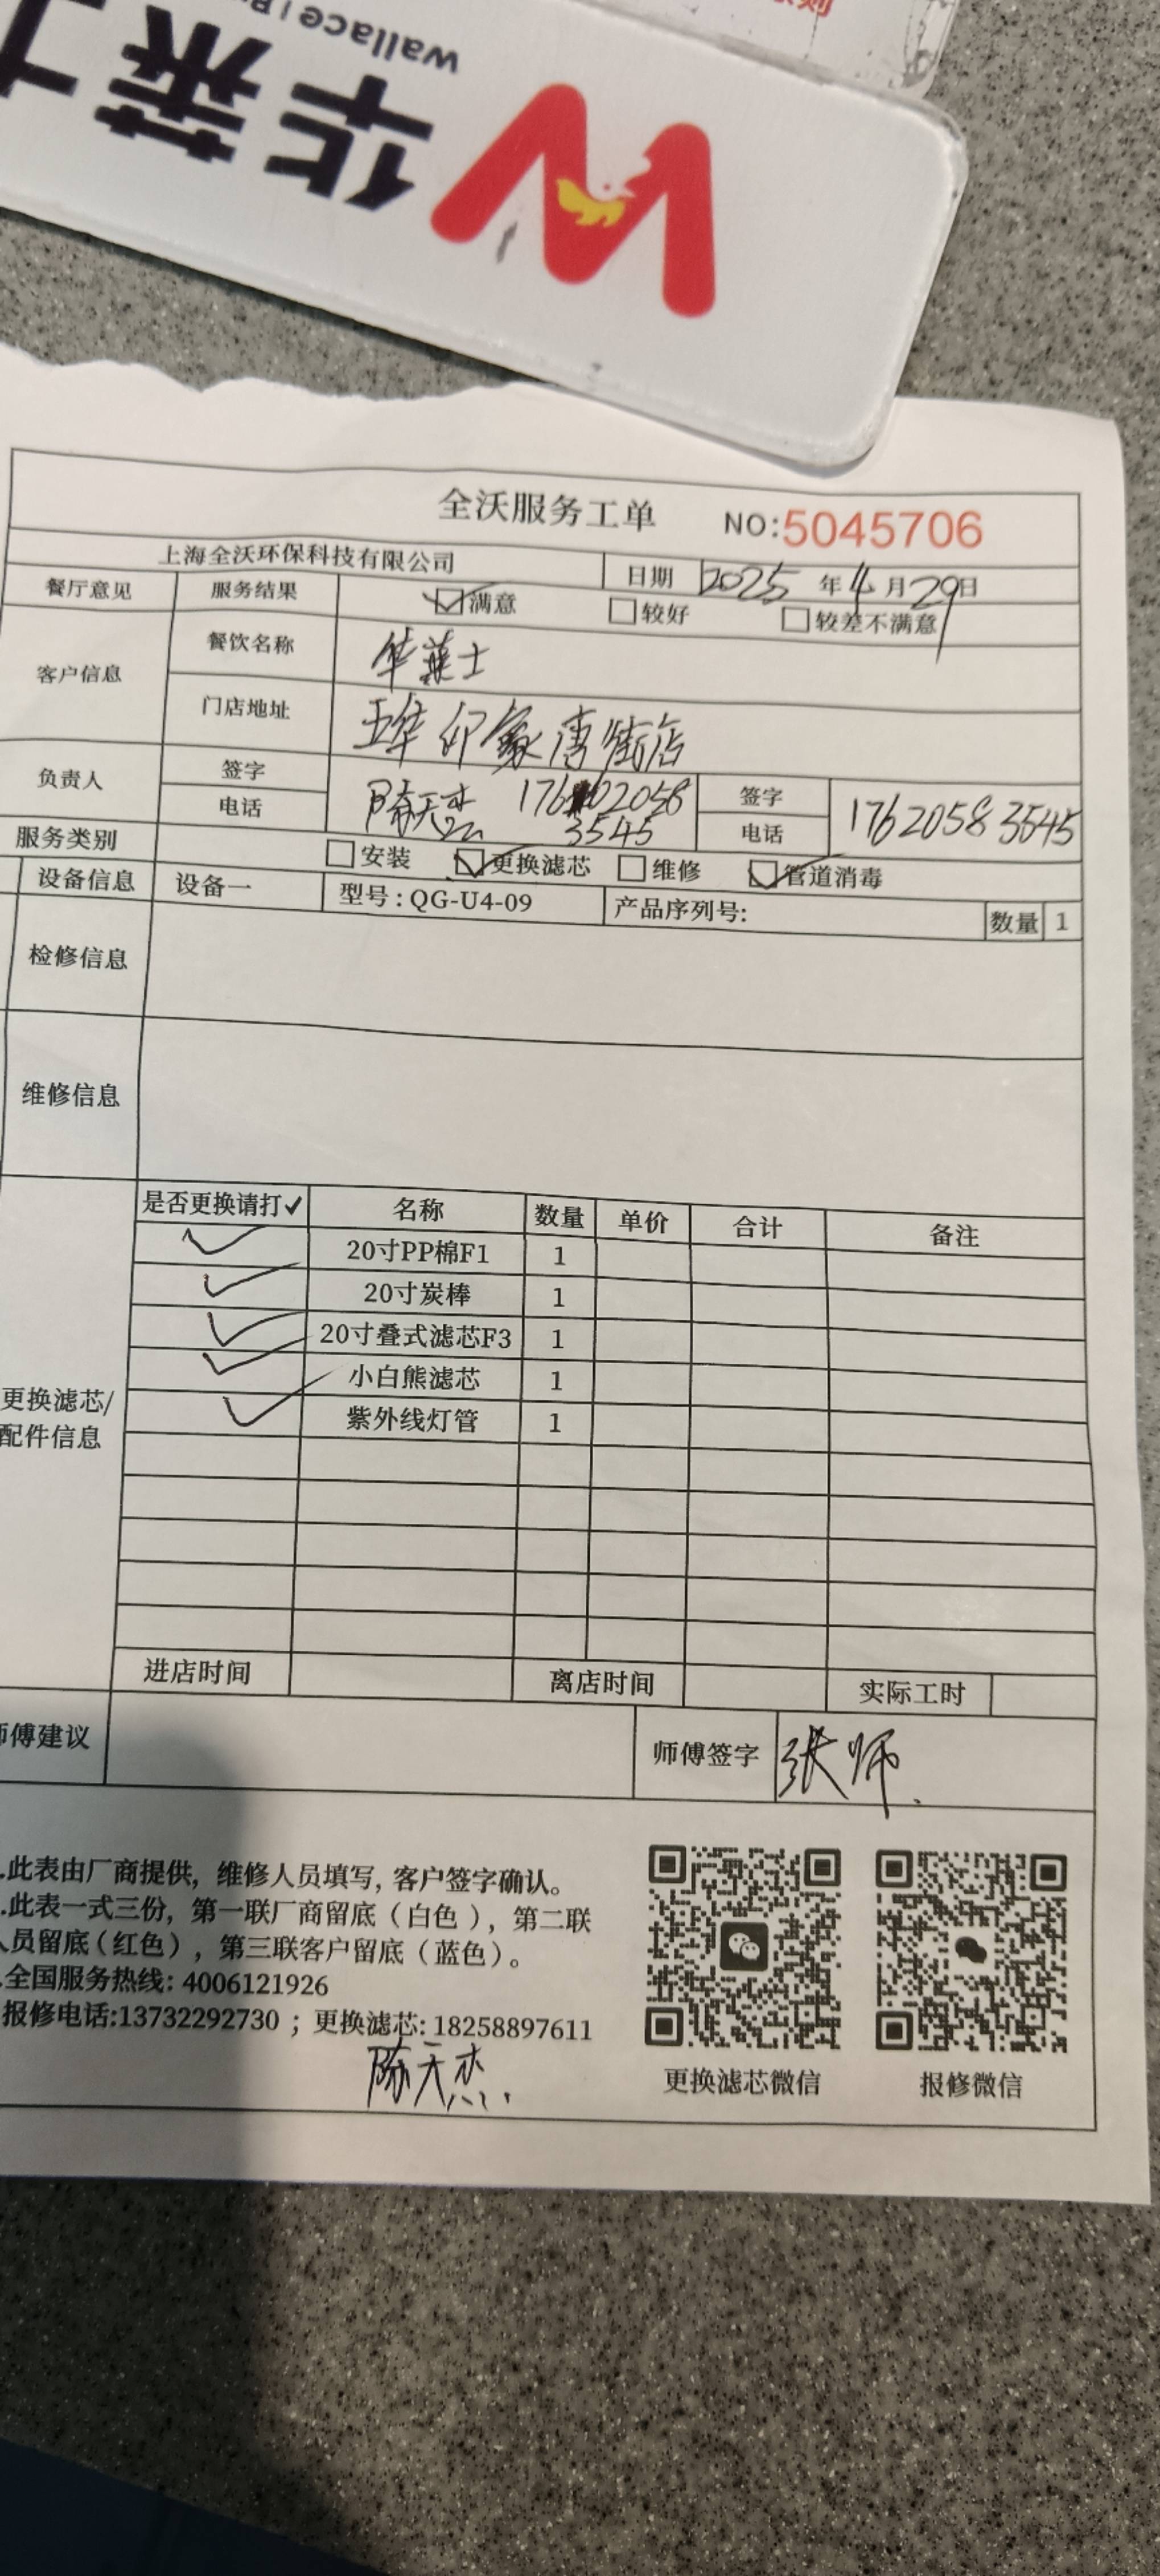 华莱士
wallace
全沃服务工单 NO:5045706
上海全沃环保科技有限公司 日期 2025 年 4 月 29 日
餐厅意见 服务结果 ☑满意 □较好 □较差不满意
客户信息 餐饮名称 华莱士
门店地址 五华印象唐街店
负责人 签字 陈天杰 签字
电话 电话 17620583545
3545
服务类别 □安装 ☑更换滤芯 □维修 ☑管道消毒
设备信息 设备一 型号：QG-U4-09 产品序列号: 数量 1
检修信息
维修信息
更换滤芯/
配件信息
是否更换请打✓ 名称 数量 单价 合计 备注
✓ 20寸PP棉F1 1
✓ 20寸炭棒 1
✓ 20寸叠式滤芯F3 1
✓ 小白熊滤芯 1
✓ 紫外线灯管 1
进店时间 离店时间 实际工时
师傅建议 师傅签字 张师
.此表由厂商提供，维修人员填写，客户签字确认。
.此表一式三份，第一联厂商留底（白色），第二联
人员留底（红色），第三联客户留底（蓝色）。
.全国服务热线: 4006121926
报修电话:13732292730；更换滤芯: 18258897611
陈天杰
更换滤芯微信 报修微信